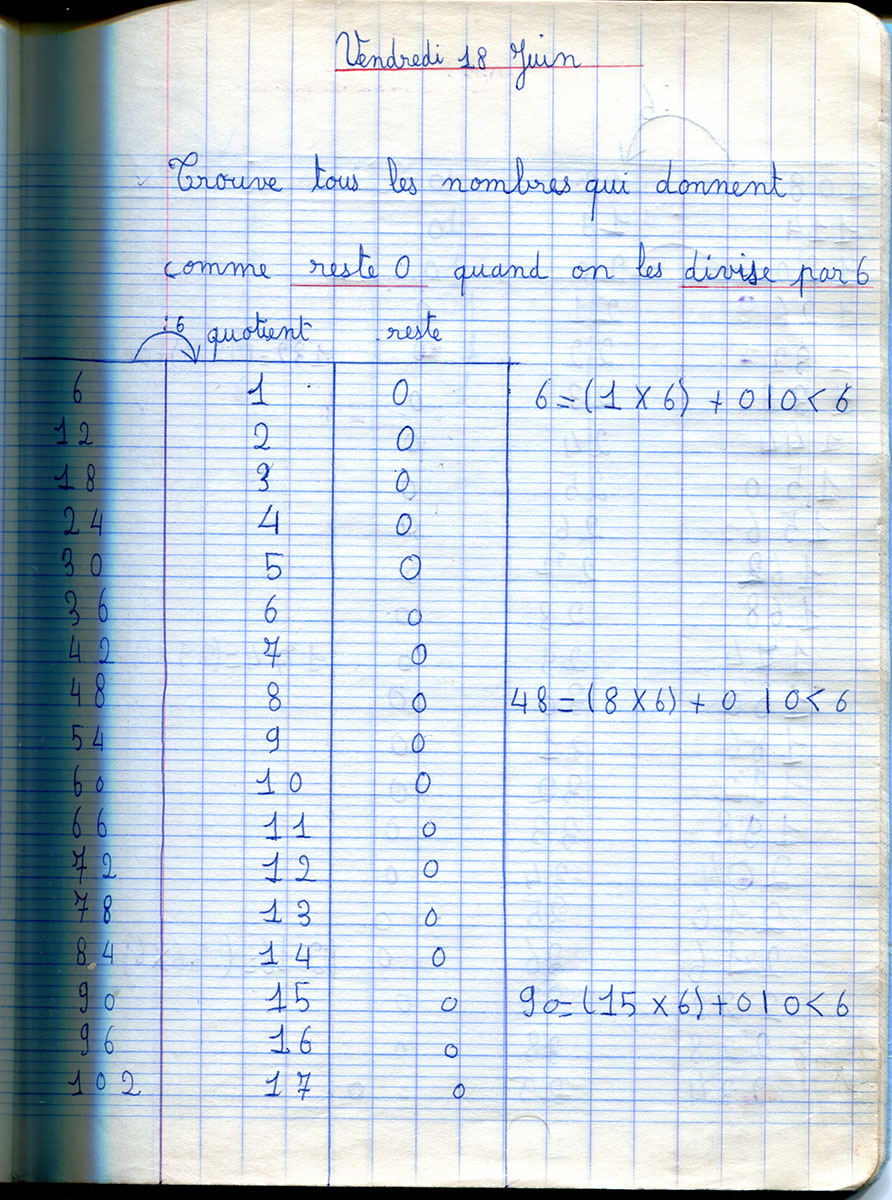 Vendredi 18 Juin
Trouve tous les nombres qui donnent
comme reste 0 quand on les divise par 6
:6 quotient reste
6 1 0 6 = (1 X 6) + 0 | 0 < 6
12 2 0
18 3 0
24 4 0
30 5 0
36 6 0
42 7 0
48 8 0 48 = (8 X 6) + 0 | 0 < 6
54 9 0
60 10 0
66 11 0
72 12 0
78 13 0
84 14 0
90 15 0 90 = (15 X 6) + 0 | 0 < 6
96 16 0
102 17 0